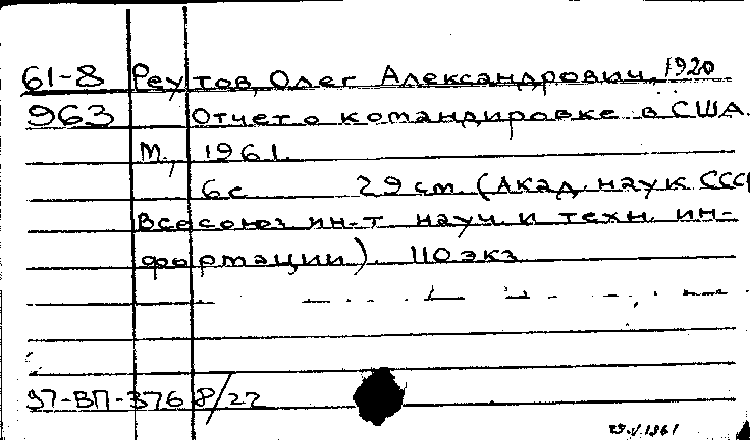 61-8 Реутов, Олег Александрович, 1920
963 Отчет о командировке в США.
М., 1961.
6с 29 см. (Акад. наук СССР
Всесоюз. ин-т науч. и техн. ин-
формации). 110 экз.
97-ВП-3768/27